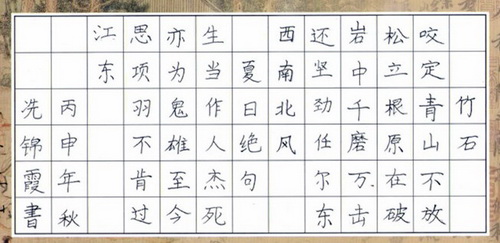 竹石
咬定青山不放
松立根原在破
岩中千磨万击
还坚劲任尔东
西南北风
夏日绝句
生当作人杰死
亦为鬼雄至今
思项羽不肯过
江东
丙申年秋
冼锦霞書